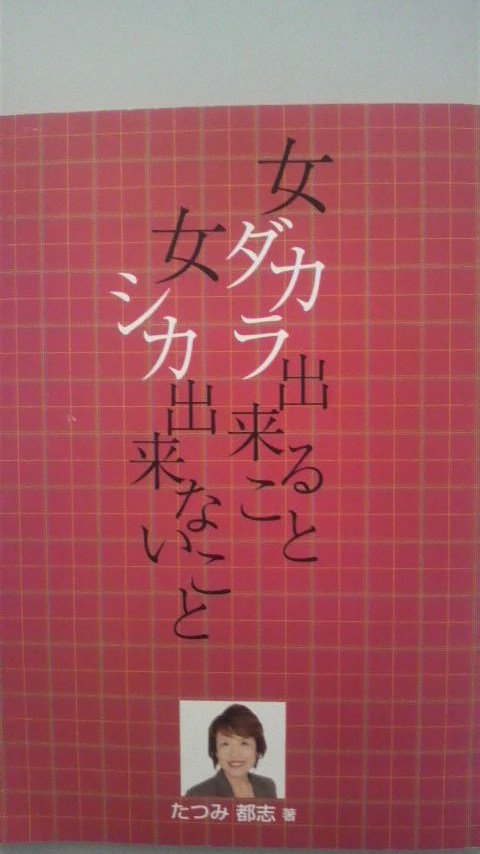 女ダカラ出来ること
女シカ出来ないこと
たつみ 都志 著